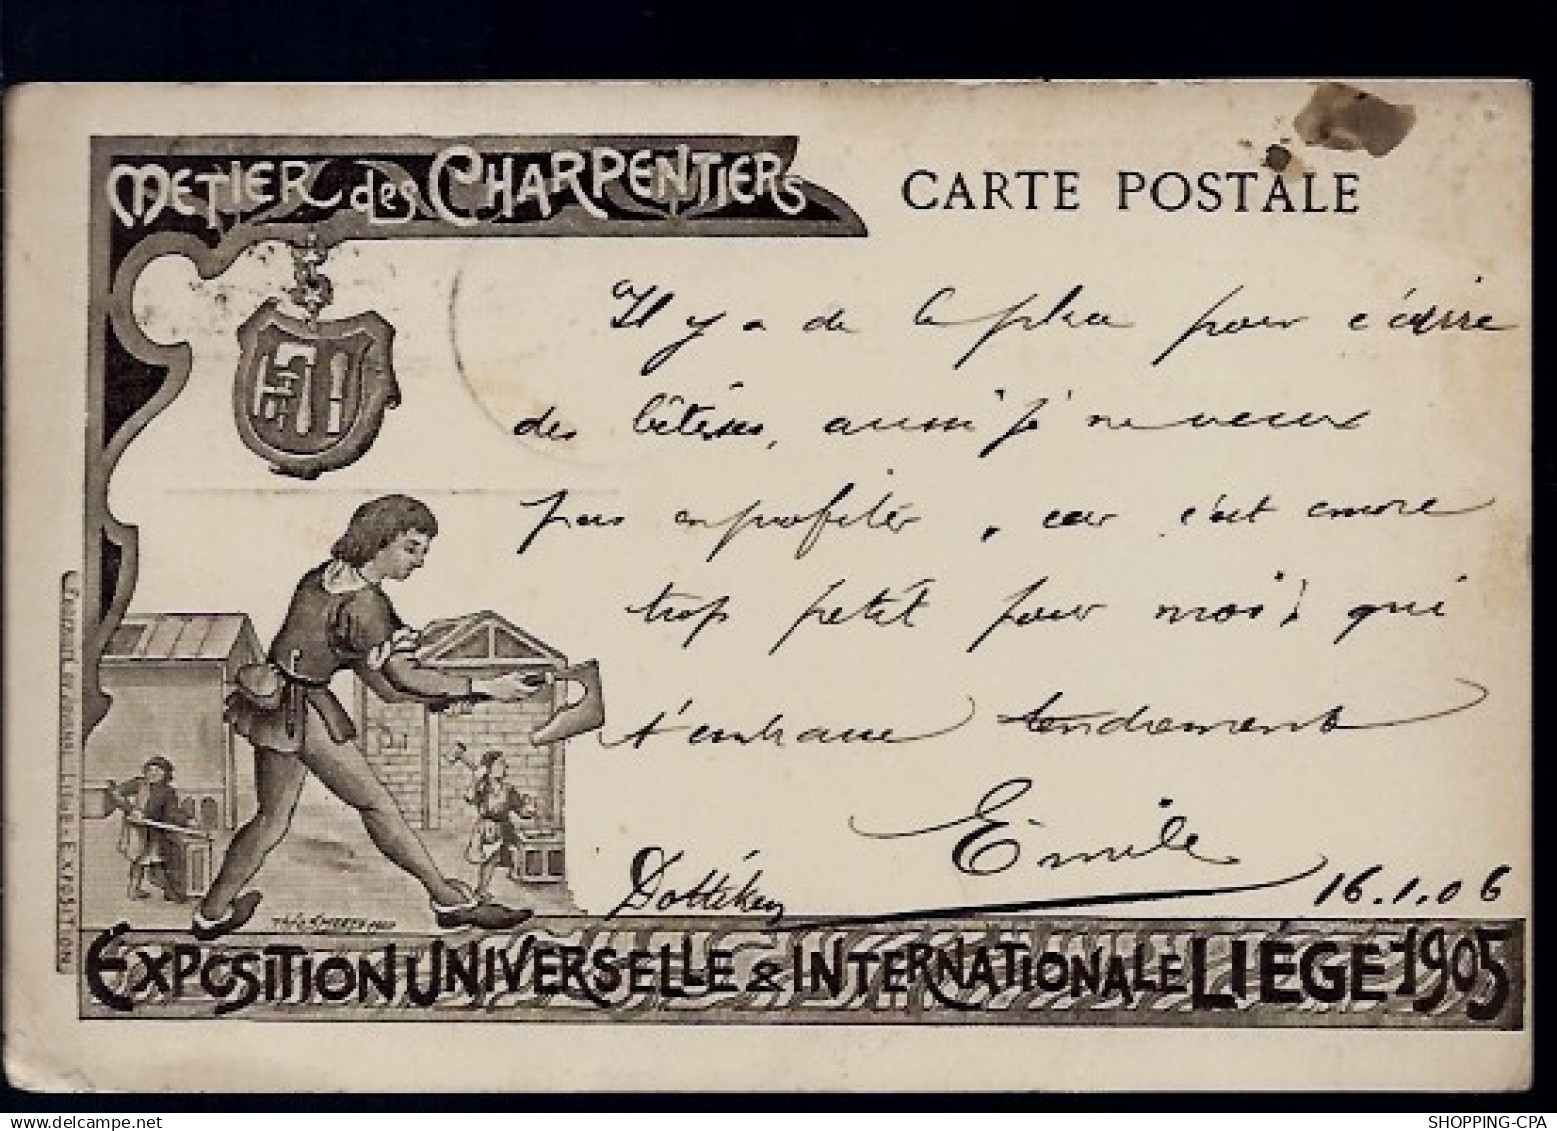 METIER des CHARPENTIERS
CARTE POSTALE
Il y a de la place pour t'écrire
des bêtises, aussi je ne veux
pas en profiter, car c'est encore
trop petit pour moi, qui
t'embrasse tendrement
Emile
Dottikon 16.1.06
EXPOSITION UNIVERSELLE & INTERNATIONALE LIÉGE 1905
SHOPPING-CPA